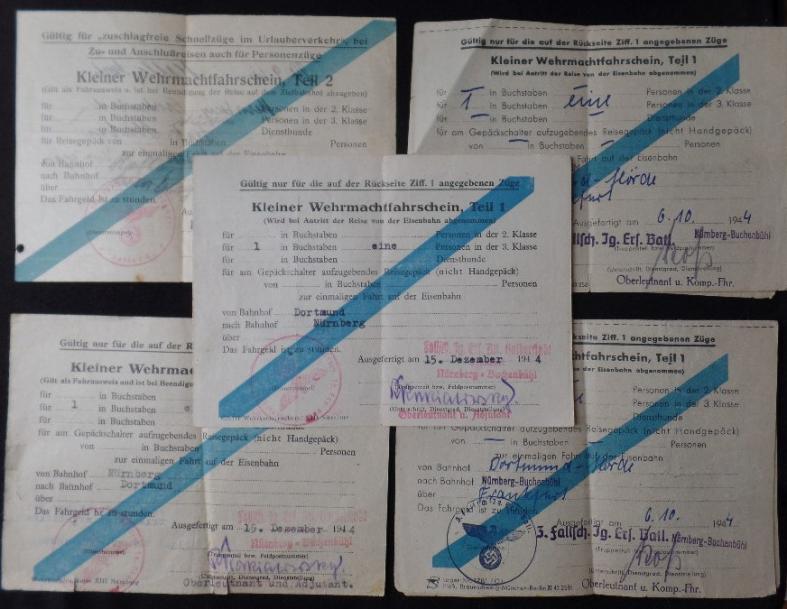 Gültig für „zuschlagfreie Schnellzüge im Urlauberverkehr, bei
Zu- und Anschlußreisen auch für Personenzüge
Kleiner Wehrmachtfahrschein, Teil 2
(Gilt als Fahrausweis u. ist bei Beendigung der Reise auf dem Zielbahnhof abzugeben)
für in Buchstaben Personen in der 2. Klasse
für in Buchstaben Personen in der 3. Klasse
für in Buchstaben Diensthunde
für Reisegepäck von in Buchstaben Personen
zur einmaligen Fahrt auf der Eisenbahn
von Bahnhof
nach Bahnhof
über
Das Fahrgeld ist zu stunden.
Gültig nur für die auf der Rückseite Ziff. 1 angegebenen Züge
Kleiner Wehrmachtfahrschein, Teil 1
(Wird bei Antritt der Reise von der Eisenbahn abgenommen)
für 1 in Buchstaben eine Personen in der 2. Klasse
für in Buchstaben Personen in der 3. Klasse
für in Buchstaben Diensthunde
für am Gepäckschalter aufzugebendes Reisegepäck (nicht Handgepäck)
von in Buchstaben Personen
Fahrt auf der Eisenbahn
Hörde
Ausgefertigt am 6.10. 1944
Fallsch. Jg. Ers. Batl. Nürnberg-Buchenbühl
(Unterschrift, Dienstgrad, Dienststellung)
Oberleutnant u. Komp.-Fhr.
Gültig nur für die auf der Rückseite Ziff. 1 angegebenen Züge
Kleiner Wehrmachtfahrschein, Teil 1
(Wird bei Antritt der Reise von der Eisenbahn abgenommen)
für in Buchstaben Personen in der 2. Klasse
für 1 in Buchstaben eine Personen in der 3. Klasse
für in Buchstaben Diensthunde
für am Gepäckschalter aufzugebendes Reisegepäck (nicht Handgepäck)
von in Buchstaben Personen
zur einmaligen Fahrt auf der Eisenbahn
von Bahnhof Dortmund
nach Bahnhof Nürnberg
über
Das Fahrgeld ist zu stunden.
Ausgefertigt am 15. Dezember 1944
Nürnberg-Buchenbühl
(Unterschrift, Dienstgrad, Dienststellung)
Oberleutnant u. Adjutant
Gültig nur für die auf der
Kleiner Wehrmac
(Gilt als Fahrausweis und ist bei Beendig
für in Buchstaben
für 1 in Buchstaben e
für in Buchstaben
für am Gepäckschalter aufzugebendes Reisegepäck (nicht Handgepäck)
von in Buchstaben Personen
zur einmaligen Fahrt auf der Eisenbahn
von Bahnhof Nürnberg
nach Bahnhof Dortmund
über
Das Fahrgeld ist zu stunden.
Ausgefertigt am 15. Dezember 1944
Nürnberg-Buchenbühl
(Unterschrift, Dienstgrad, Dienststellung)
Oberleutnant und Adjutant.
der Rückseite Ziff. 1 angegebenen Züge
chtfahrschein, Teil 1
von der Eisenbahn abgenommen)
Personen in der 2. Klasse
Personen in der 3. Klasse
Diensthunde
aufzugebendes Reisegepäck (nicht Handgepäck)
von in Buchstaben Personen
zur einmaligen Fahrt auf der Eisenbahn
von Bahnhof Dortmund-Hörde
nach Bahnhof Nürnberg-Buchenbühl
über Frankfurt
Das Fahrgeld ist zu stunden.
Ausgefertigt am 6.10. 1944
3. Fallsch. Jg. Ers. Batl. Nürnberg-Buchenbühl
(Unterschrift, Dienstgrad, Dienststellung)
Oberleutnant u. Komp.-Fhr.